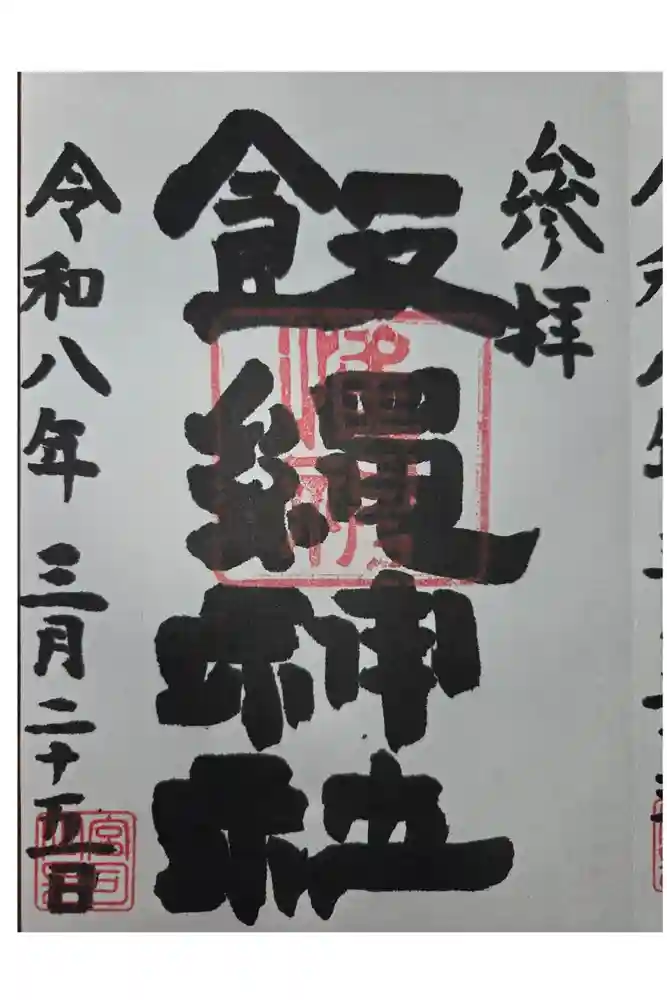 参拝
飯縄神社
令和八年 三月二十五日